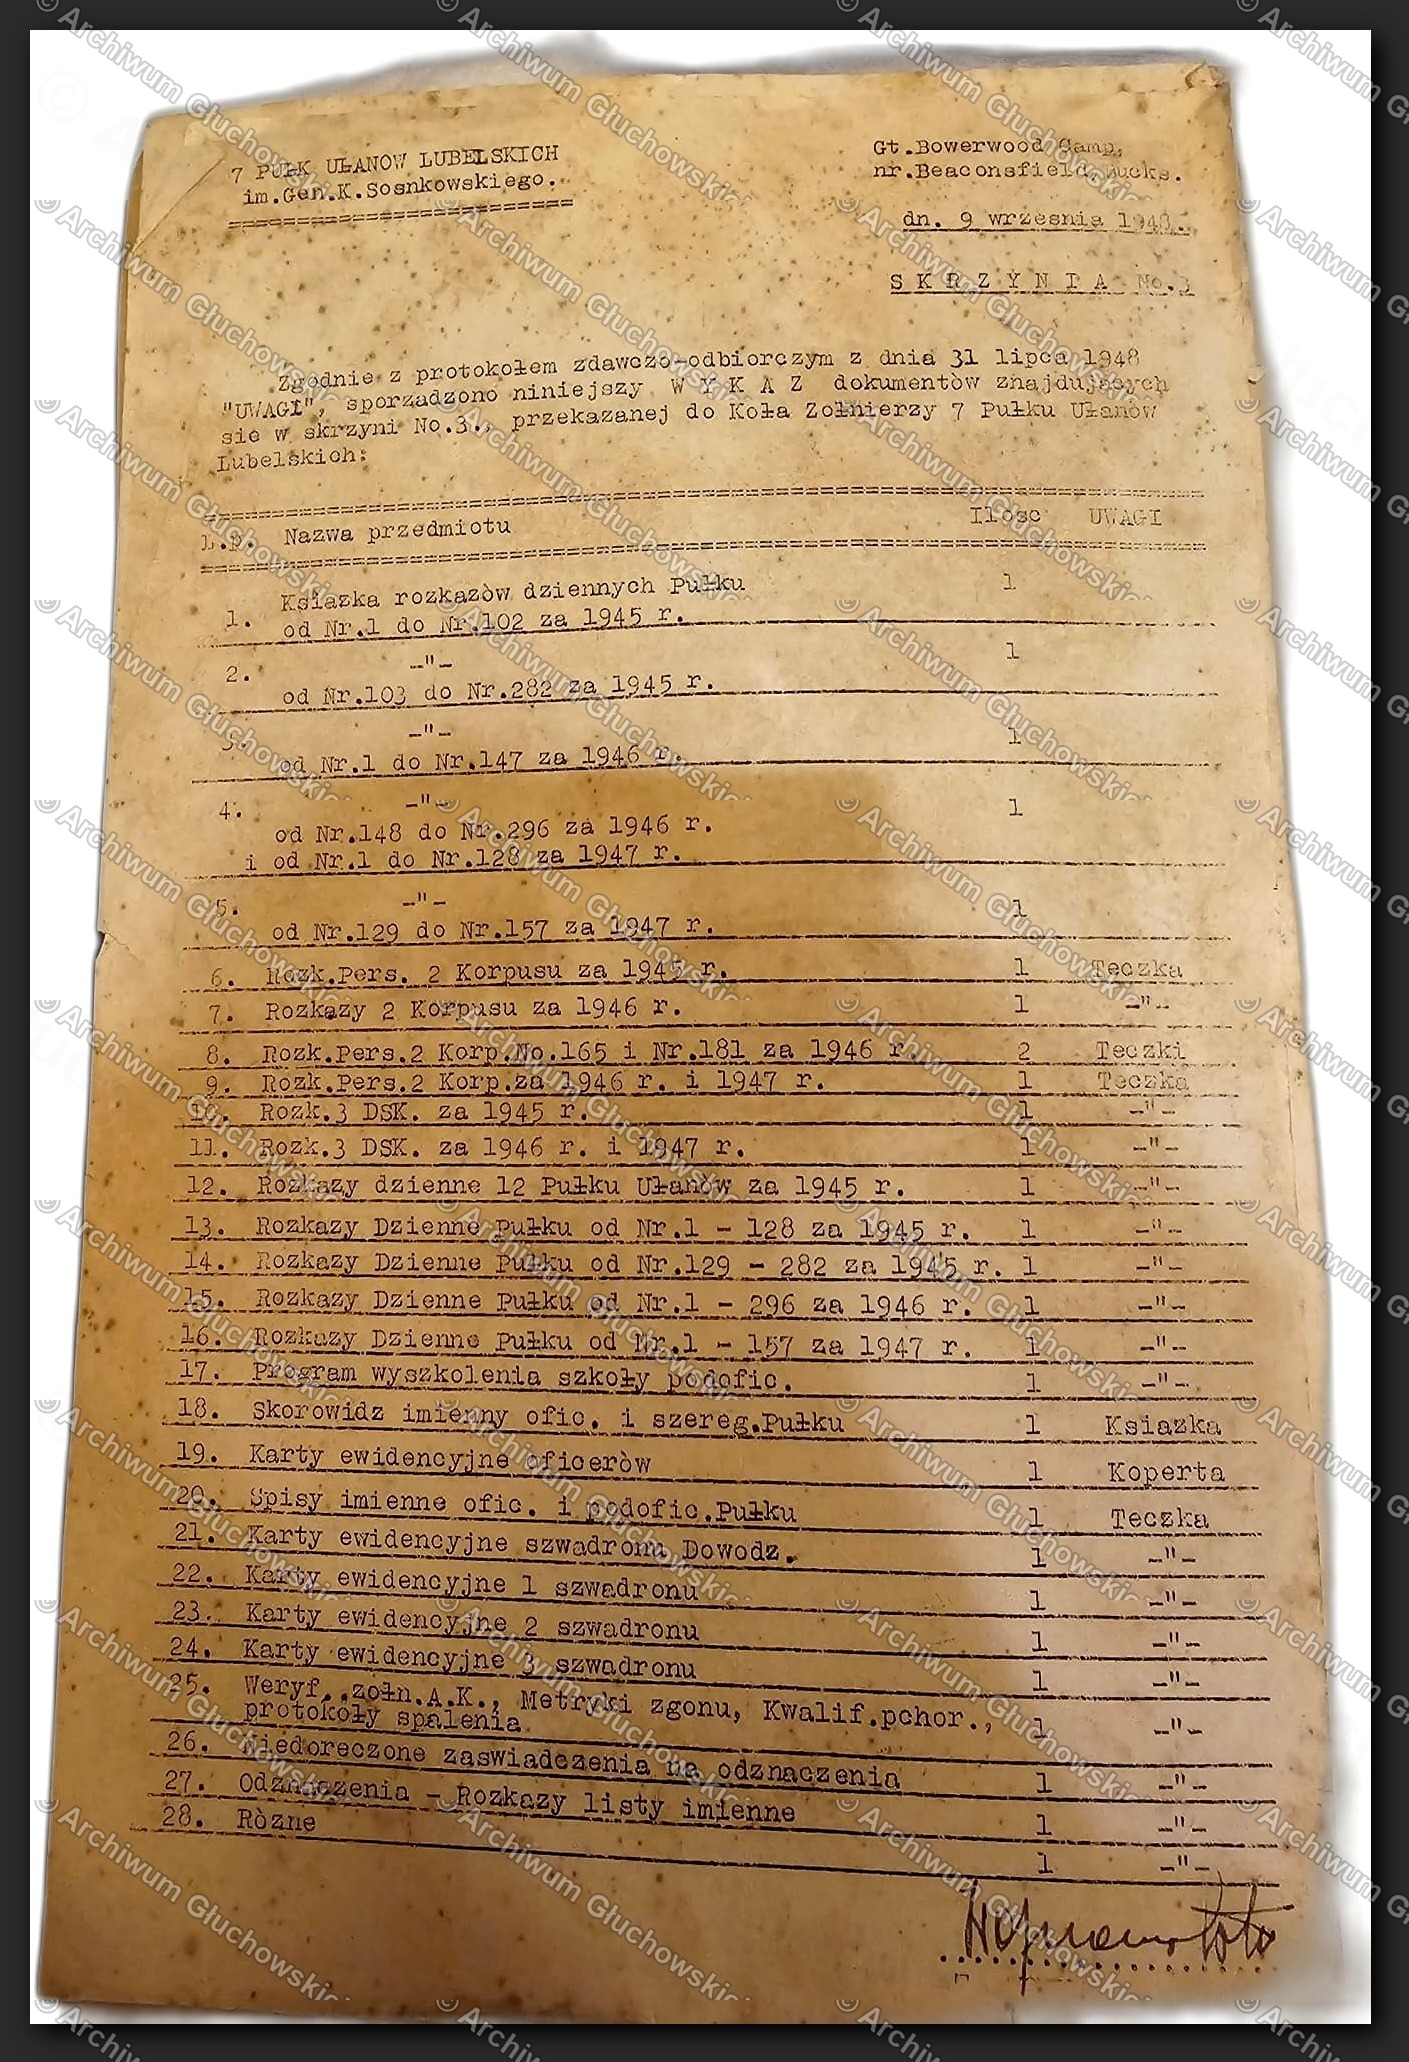 7 PUŁK UŁANOW LUBELSKICH
im.Gen.K.Sosnkowskiego.
Gt.Bowerwood Camp,
nr.Beaconsfield, Bucks.
dn. 9 wrzesnia 1948.
S K R Z Y N I A No.3
Zgodnie z protokołem zdawczo-odbiorczym z dnia 31 lipca 1948
"UWAGI", sporzadzono niniejszy W Y K A Z dokumentòw znajdujacych
sie w skrzyni No.3., przekazanej do Koła Zołnierzy 7 Pułku Ułanòw
Lubelskich:
L.p. Nazwa przedmiotu Ilosc UWAGI
1. Ksiazka rozkazòw dziennych Pułku 1
od Nr.1 do Nr.102 za 1945 r.
2. -"- 1
od Nr.103 do Nr.282 za 1945 r.
3. -"- 1
od Nr.1 do Nr.147 za 1946 r.
4. -"- 1
od Nr.148 do Nr.296 za 1946 r.
i od Nr.1 do Nr.128 za 1947 r.
5. -"- 1
od Nr.129 do Nr.157 za 1947 r.
6. Rozk.Pers. 2 Korpusu za 1945 r. 1 Teczka
7. Rozkazy 2 Korpusu za 1946 r. 1 -"-
8. Rozk.Pers.2 Korp.No.165 i Nr.181 za 1946 r. 2 Teczki
9. Rozk.Pers.2 Korp.za 1946 r. i 1947 r. 1 Teczka
10. Rozk.3 DSK. za 1945 r. 1 -"-
11. Rozk.3 DSK. za 1946 r. i 1947 r. 1 -"-
12. Rozkazy dzienne 12 Pułku Ułanòw za 1945 r. 1 -"-
13. Rozkazy Dzienne Pułku od Nr.1 - 128 za 1945 r. 1 -"-
14. Rozkazy Dzienne Pułku od Nr.129 - 282 za 1945 r. 1 -"-
15. Rozkazy Dzienne Pułku od Nr.1 - 296 za 1946 r. 1 -"-
16. Rozkazy Dzienne Pułku od Nr.1 - 157 za 1947 r. 1 -"-
17. Program wyszkolenia szkoły podofic. 1 -"-
18. Skorowidz imienny ofic. i szereg.Pułku 1 Ksiazka
19. Karty ewidencyjne oficeròw 1 Koperta
20. Spisy imienne ofic. i podofic.Pułku 1 Teczka
21. Karty ewidencyjne szwadronu Dowodz. 1 -"-
22. Karty ewidencyjne 1 szwadronu 1 -"-
23. Karty ewidencyjne 2 szwadronu 1 -"-
24. Karty ewidencyjne 3 szwadronu 1 -"-
25. Weryf. zołn.A.K., Metryki zgonu, Kwalif.pchor., 1 -"-
protokoły spalenia
26. Niedoreczone zaswiadczenia na odznaczenia 1 -"-
27. Odznaczenia - Rozkazy listy imienne 1 -"-
28. Ròzne 1 -"-
© Archiwum Głuchowskich